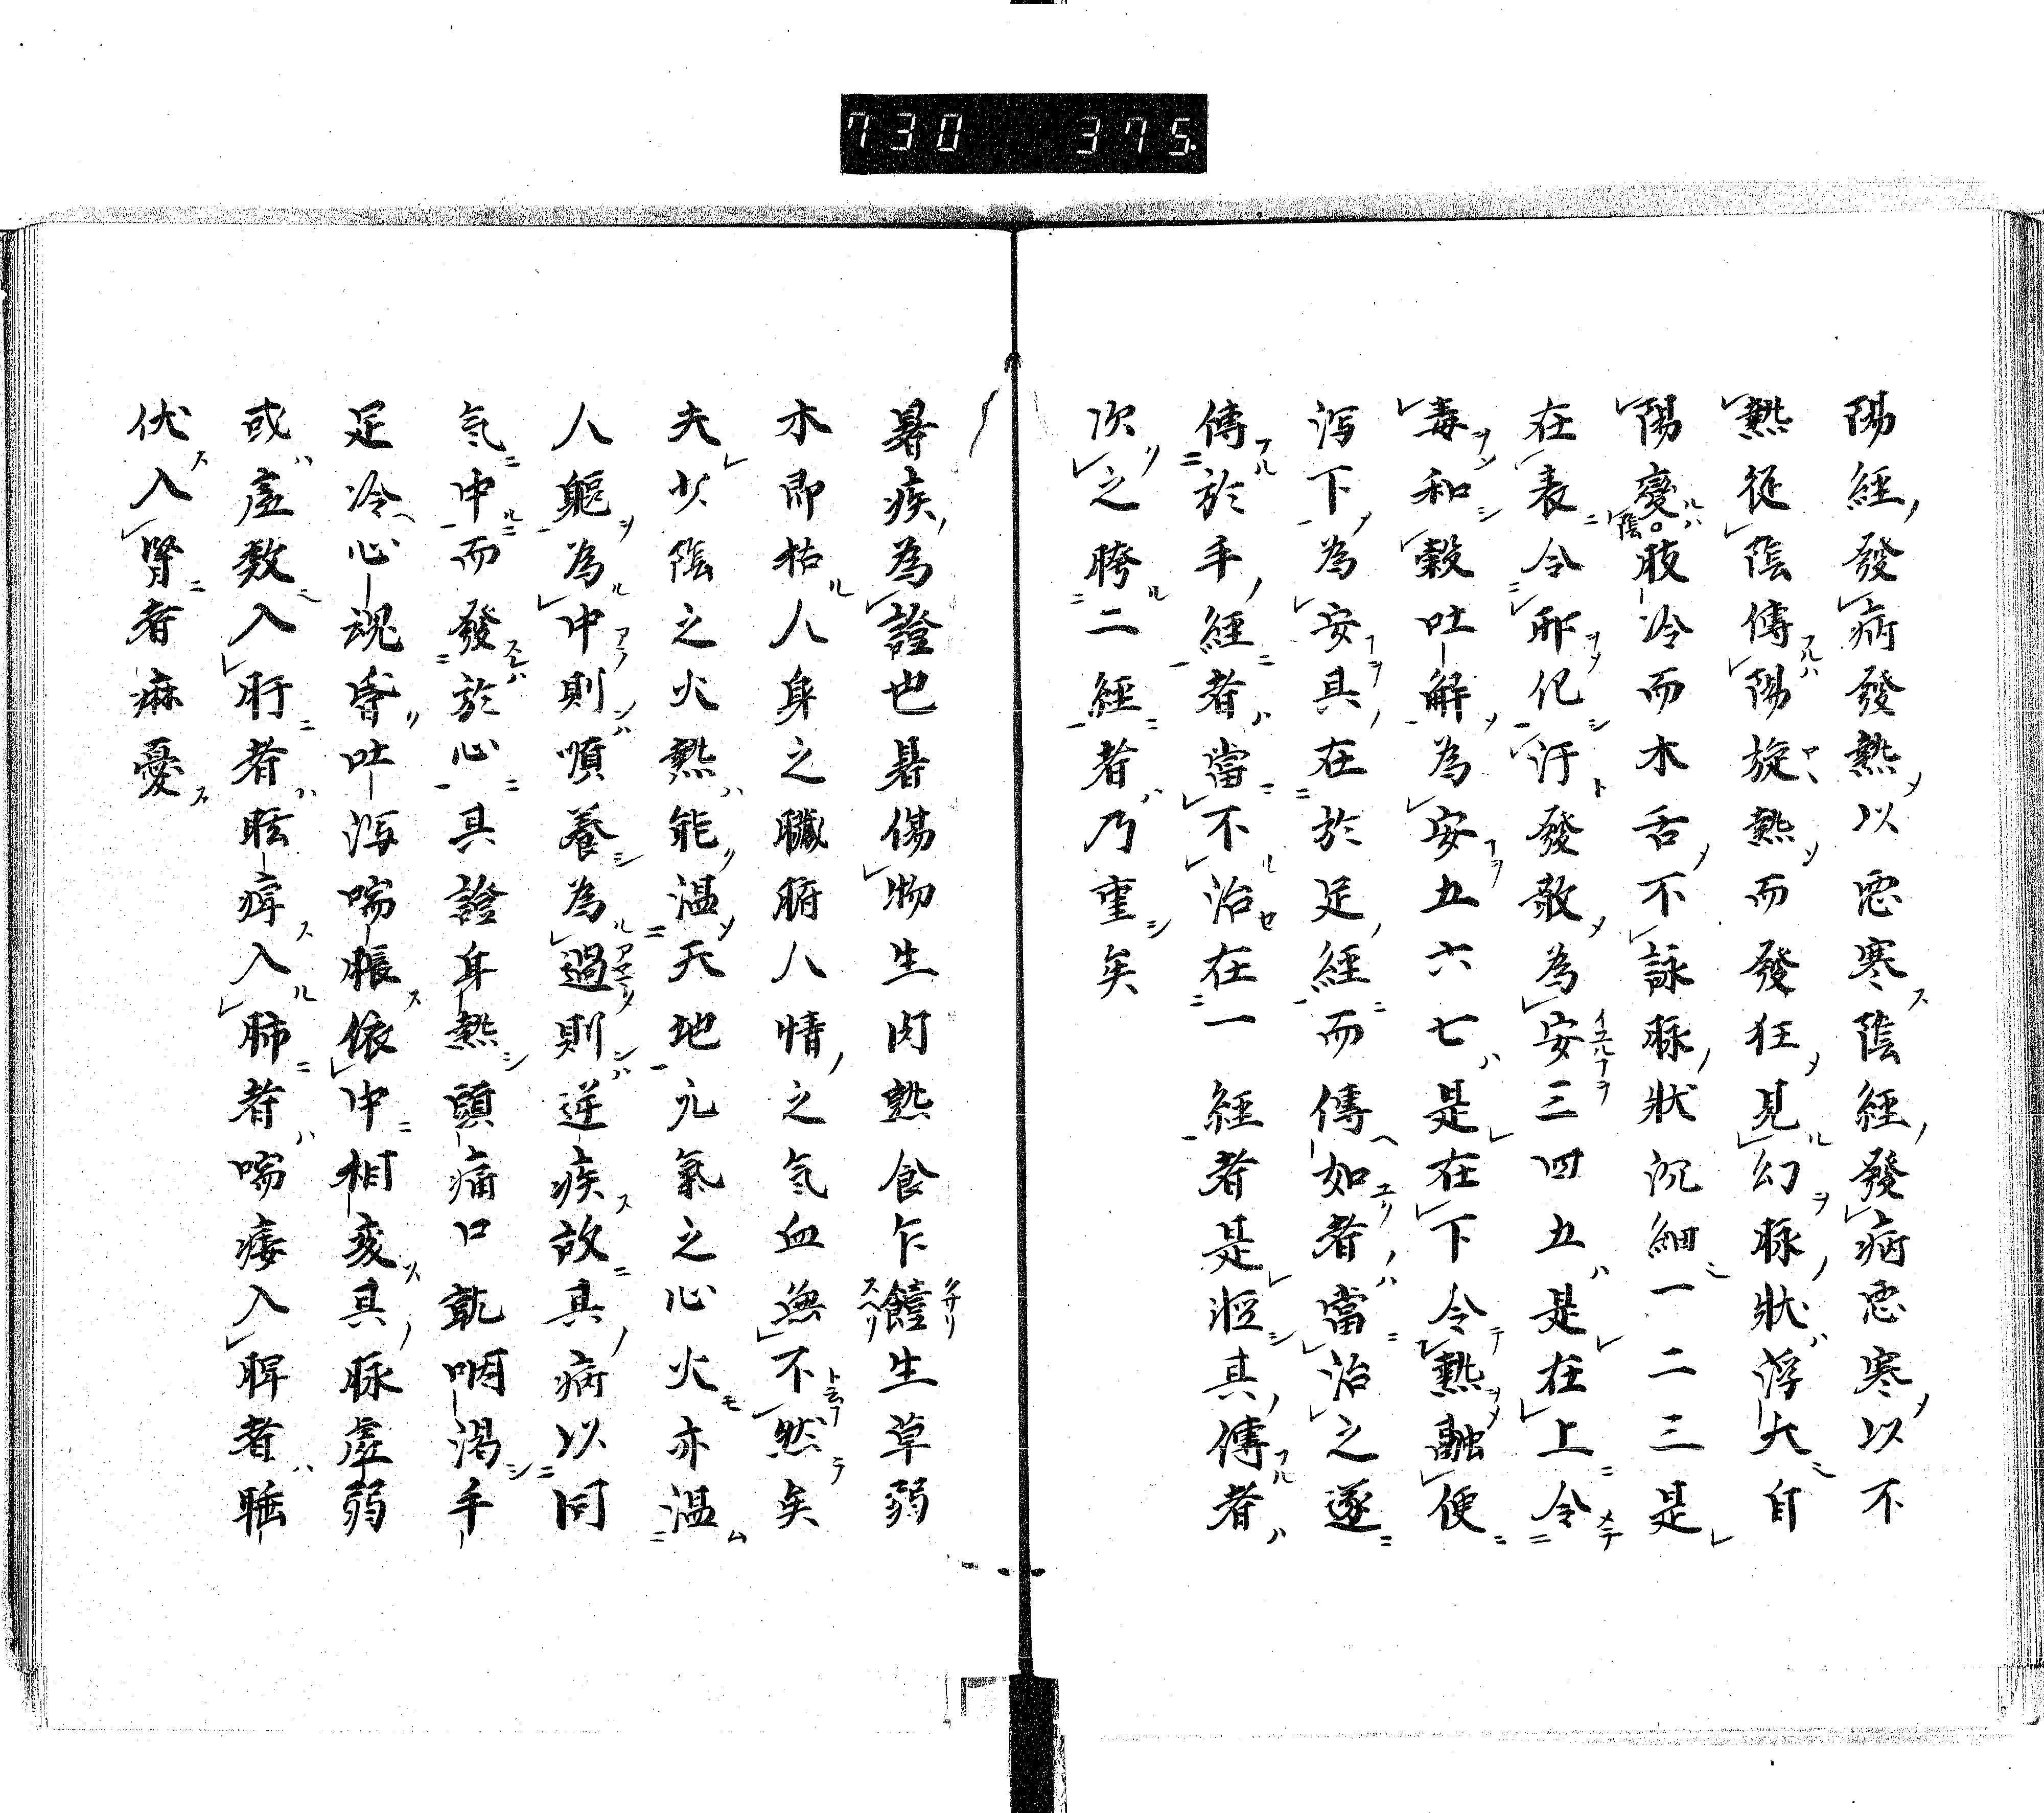 730 375.
陽經發病發熱以惡寒陰經發病惡寒以不
熱從陰傳陽旋熱而發狂見幻脉狀浮大自
陽變陰肢冷而木舌不詠脉狀沉細一二三是
在表令邪化汗發散為安三四五是在上令
毒和穀吐解為安五六七是在下令熱融便
瀉下為安具在於足經而傳如者當治之遂
傳於手經者當不治在一經者是涇其傳者
次之胯二經者乃重矣
暑疾為證也暑傷物生肉熟食乍饐生草弱
木即枯人身之臟腑人情之気血無不然矣
夫少陰之火熱能温天地元氣之心火亦温
人軀為中則順養為過則逆疾故具病以同
気中而發於心具證身熱頭痛口乾咽渇手
足冷心魂昏吐瀉喘脹依中相变具脉虛弱
或虛数入肝者眩痺入肺者喘痿入脾者睡
伏入腎者麻憂